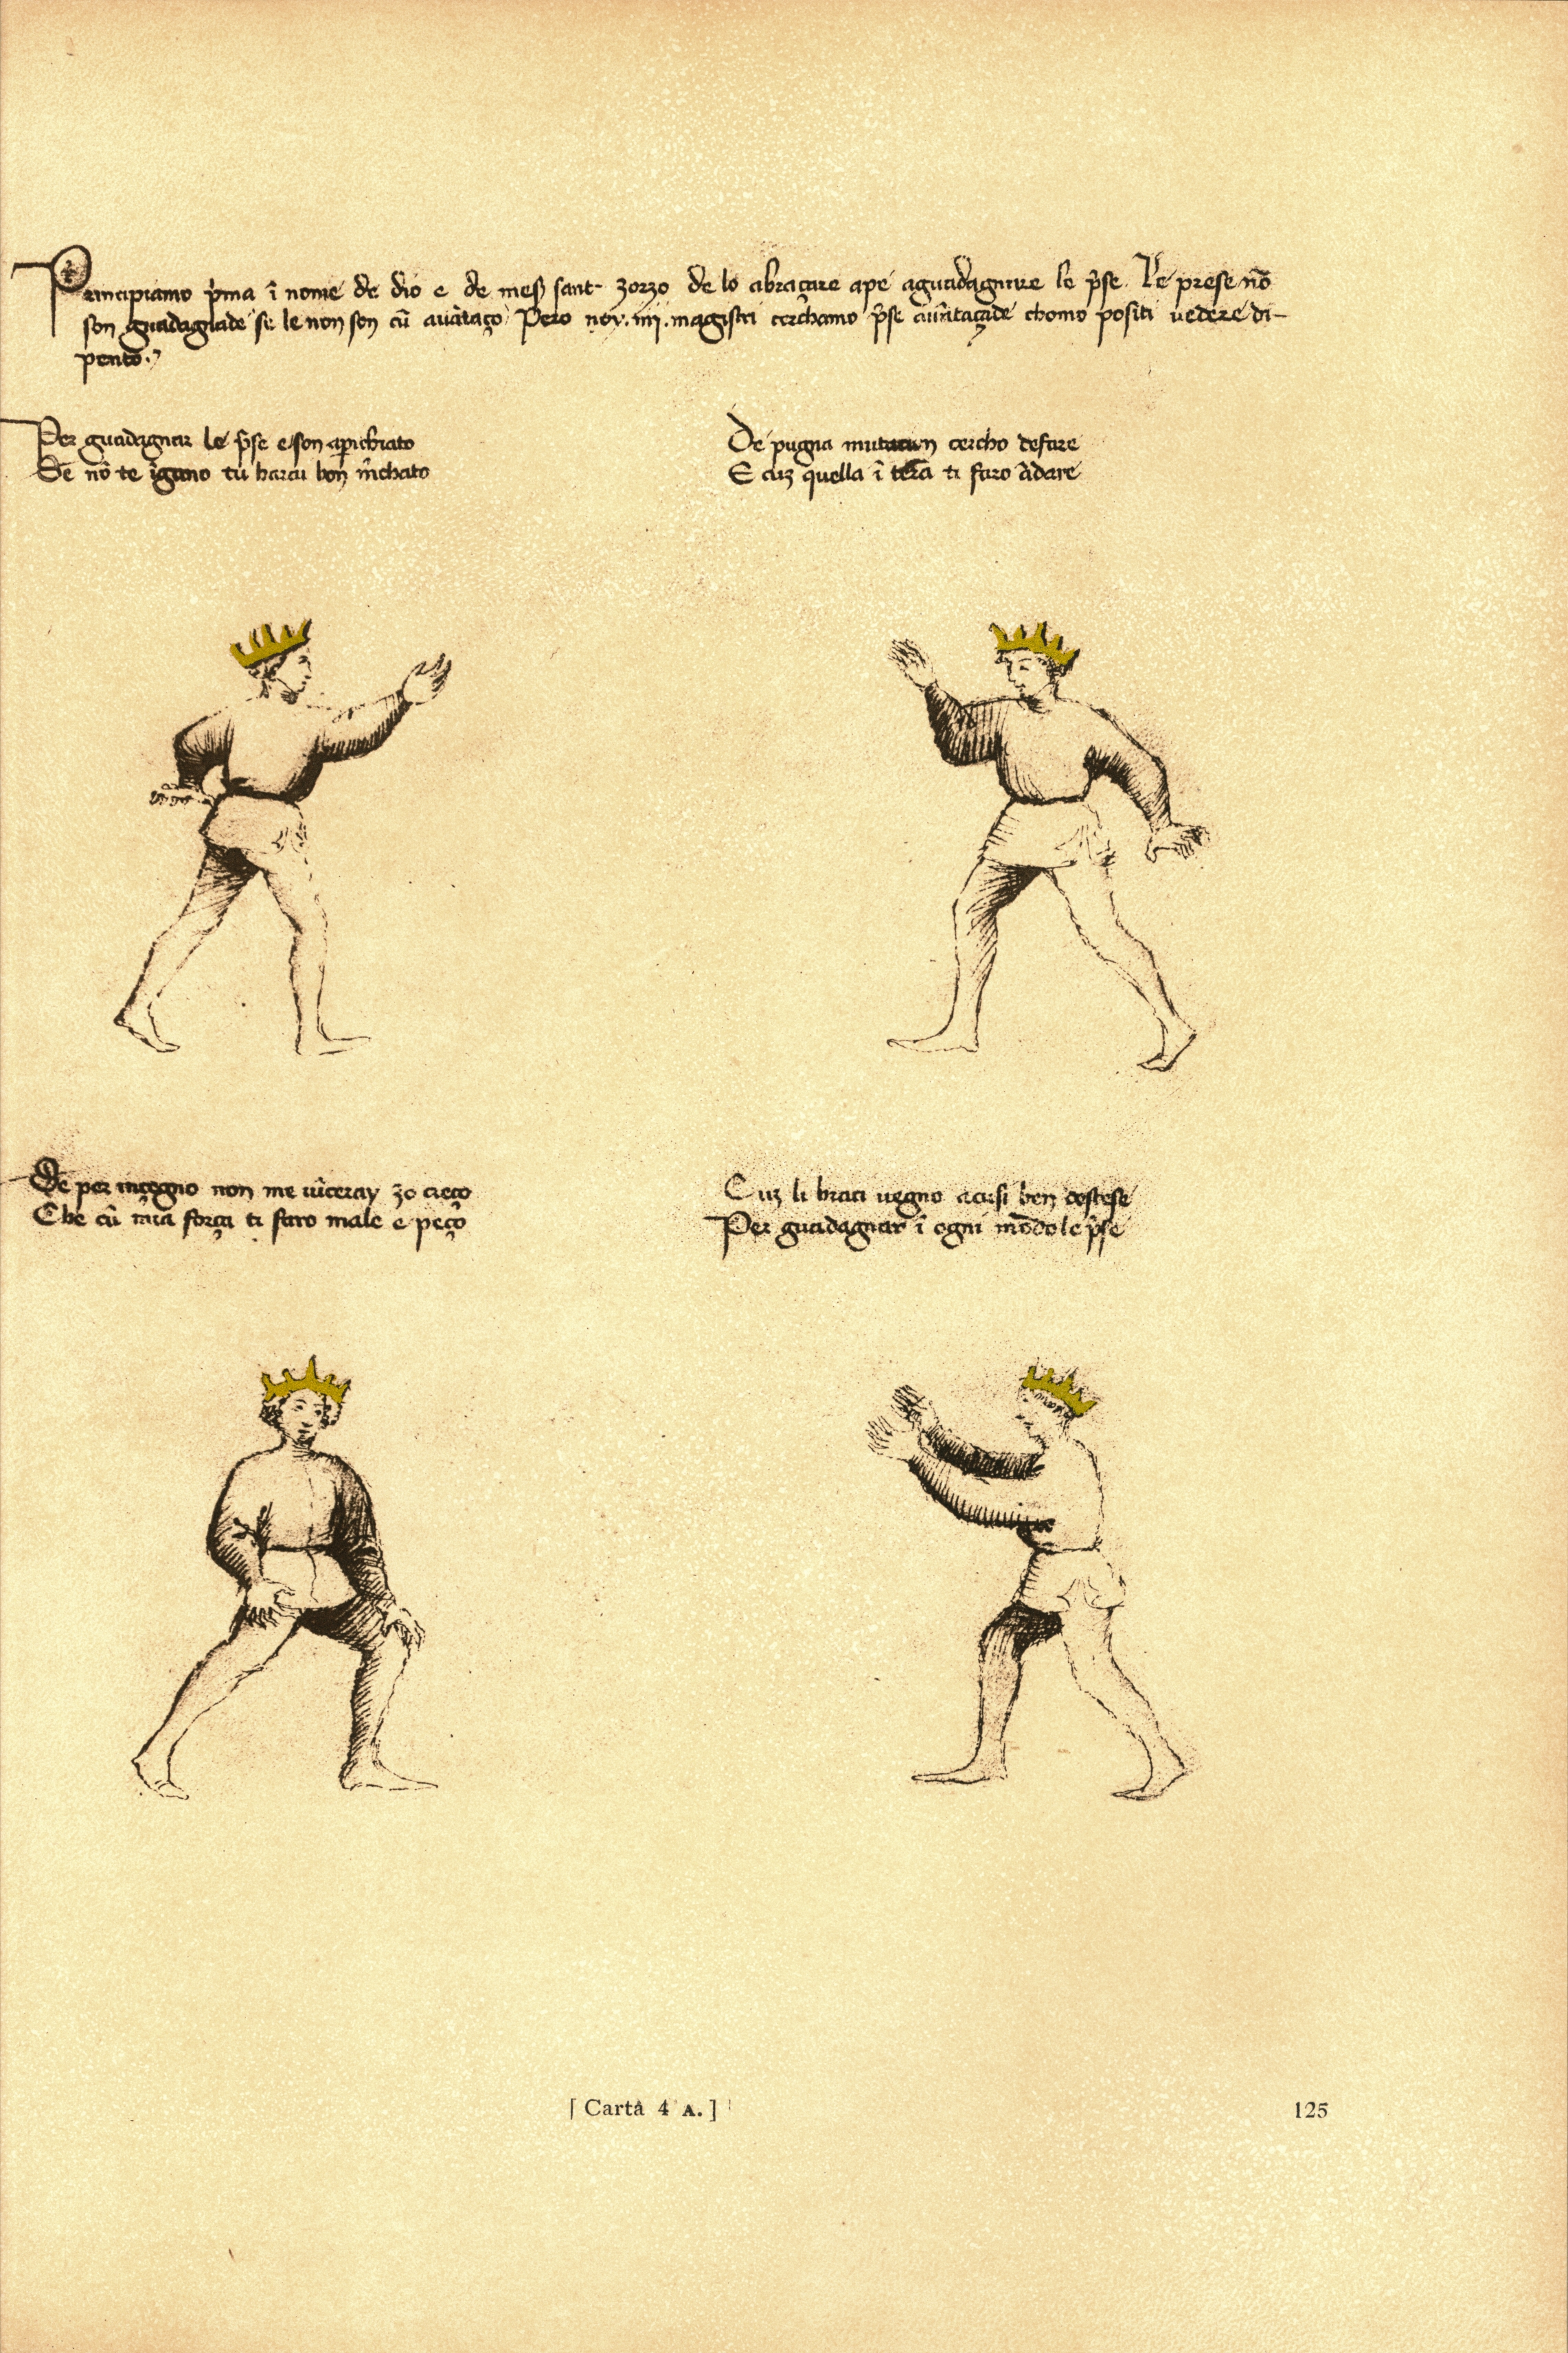 Principiamo p̄ma ī nome de dio e de mes̄ sant zorzo de lo abraçare ape aguadagnare le p̄se. Le prese nō
son guadagnade se le non son cū avātaço. Pero noy .iiij. magistri cerchamo p̄se avātaçade chomo positi vedere di-
pento.
Per guadagnar le p̄se e son aparichiato
Se nō te īgano tu harai bon m̄chato
De pugna mutacion cercho de fare
E cuz quella ī terā ti faro ādare
Se per inçegno non me vīceray zo creço
Che cū mia força ti faro male e peço
Cuz li braci vegno acusi ben destese
Per guadagnar ī ogni mōdo le p̄se
[ Carta 4 A. ]
125